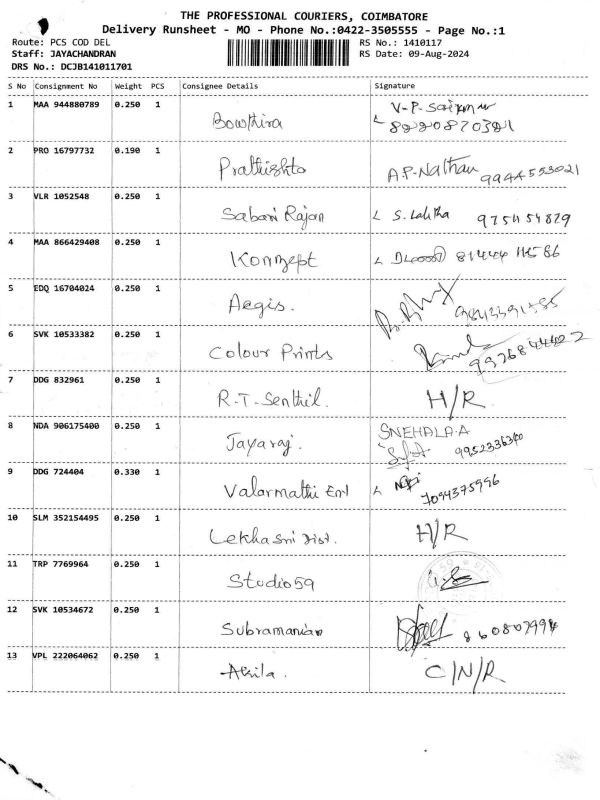 THE PROFESSIONAL COURIERS, COIMBATORE
Delivery Runsheet - MO - Phone No.:0422-3505555 - Page No.:1
Route: PCS COD DEL RS No.: 1410117
Staff: JAYACHANDRAN RS Date: 09-Aug-2024
DRS No.: DCJB141011701
S No Consignment No Weight PCS Consignee Details Signature
1 MAA 944880789 0.250 1 Bowthira V-P-Saikumar
8220870321
2 PRO 16797732 0.190 1 Prathishta A.P-Nathan 9944553021
3 VLR 1052548 0.250 1 Sabari Rajan S. Lalitha
4 MAA 866429408 0.250 1 Konzept
5 EDQ 16704024 0.250 1 Aegis.
6 SVK 10533382 0.250 1 Colour Prints
7 DDG 832961 0.250 1 R-T-Senthil. H/R
8 NDA 906175400 0.250 1 Jayaraj. SNEHALA.A
9952336300
9 DDG 724404 0.330 1 Valarmathi Ent 7094375996
10 SLM 352154495 0.250 1 Lekhasri Dist. H/R
11 TRP 7769964 0.250 1 Studio59
12 SVK 10534672 0.250 1 Subramanian
13 VPL 222064062 0.250 1 Akila. C/N/R